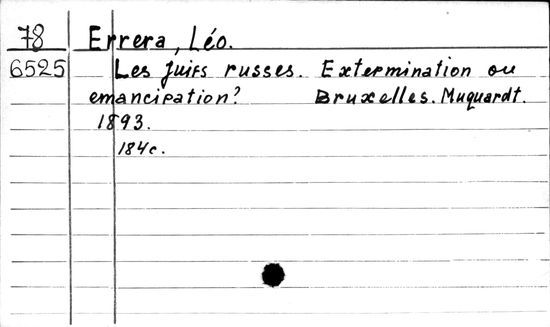 78 Errera, Léo.
6525 Les Juifs russes. Extermination ou
emancipation? Bruxelles. Muquardt.
1893.
184c.